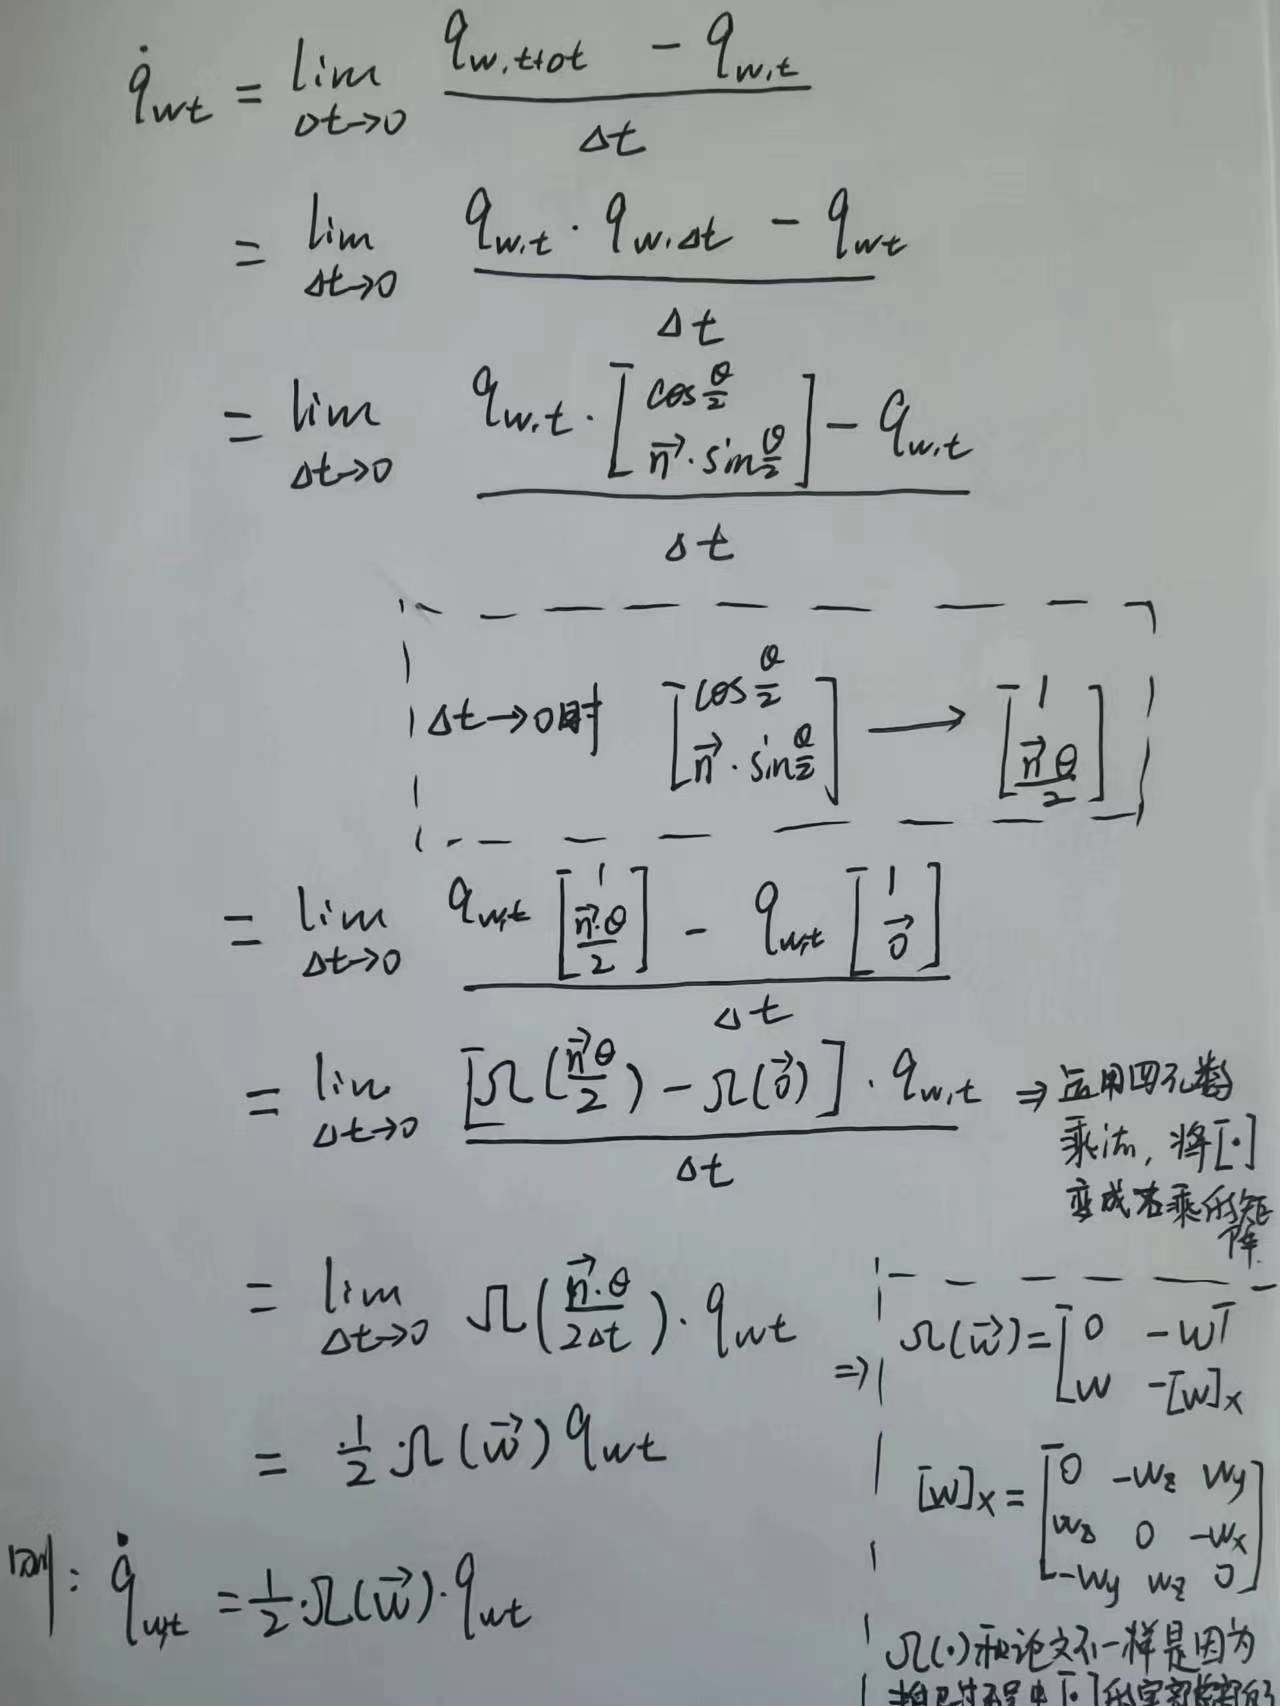 q̇_{wt} = lim_{Δt→0} (q_{w,t+Δt} - q_{w,t}) / Δt
= lim_{Δt→0} (q_{w,t} · q_{w,Δt} - q_{wt}) / Δt
= lim_{Δt→0} (q_{w,t} · [cos θ/2; n⃗·sin θ/2] - q_{w,t}) / Δt
Δt→0时 [cos θ/2; n⃗·sin θ/2] → [1; n⃗θ/2]
= lim_{Δt→0} (q_{w,t} [1; n⃗·θ/2] - q_{w,t} [1; 0⃗]) / Δt
= lim_{Δt→0} ([Ω(n⃗θ/2) - Ω(0⃗)] · q_{w,t}) / Δt ⇒ 运用四元数
乘法, 将[·]
变成右乘的矩
阵
= lim_{Δt→0} Ω(n⃗·θ/2Δt) · q_{wt}
⇒ Ω(w⃗) = [0 -w^T; w -[w]_×]
= 1/2 · Ω(w⃗) q_{wt}
[w]_× = [0 -w_z w_y; w_z 0 -w_x; -w_y w_z 0]
则: q̇_{w,t} = 1/2 · Ω(w⃗) · q_{wt}
Ω(·)和论文不一样是因为